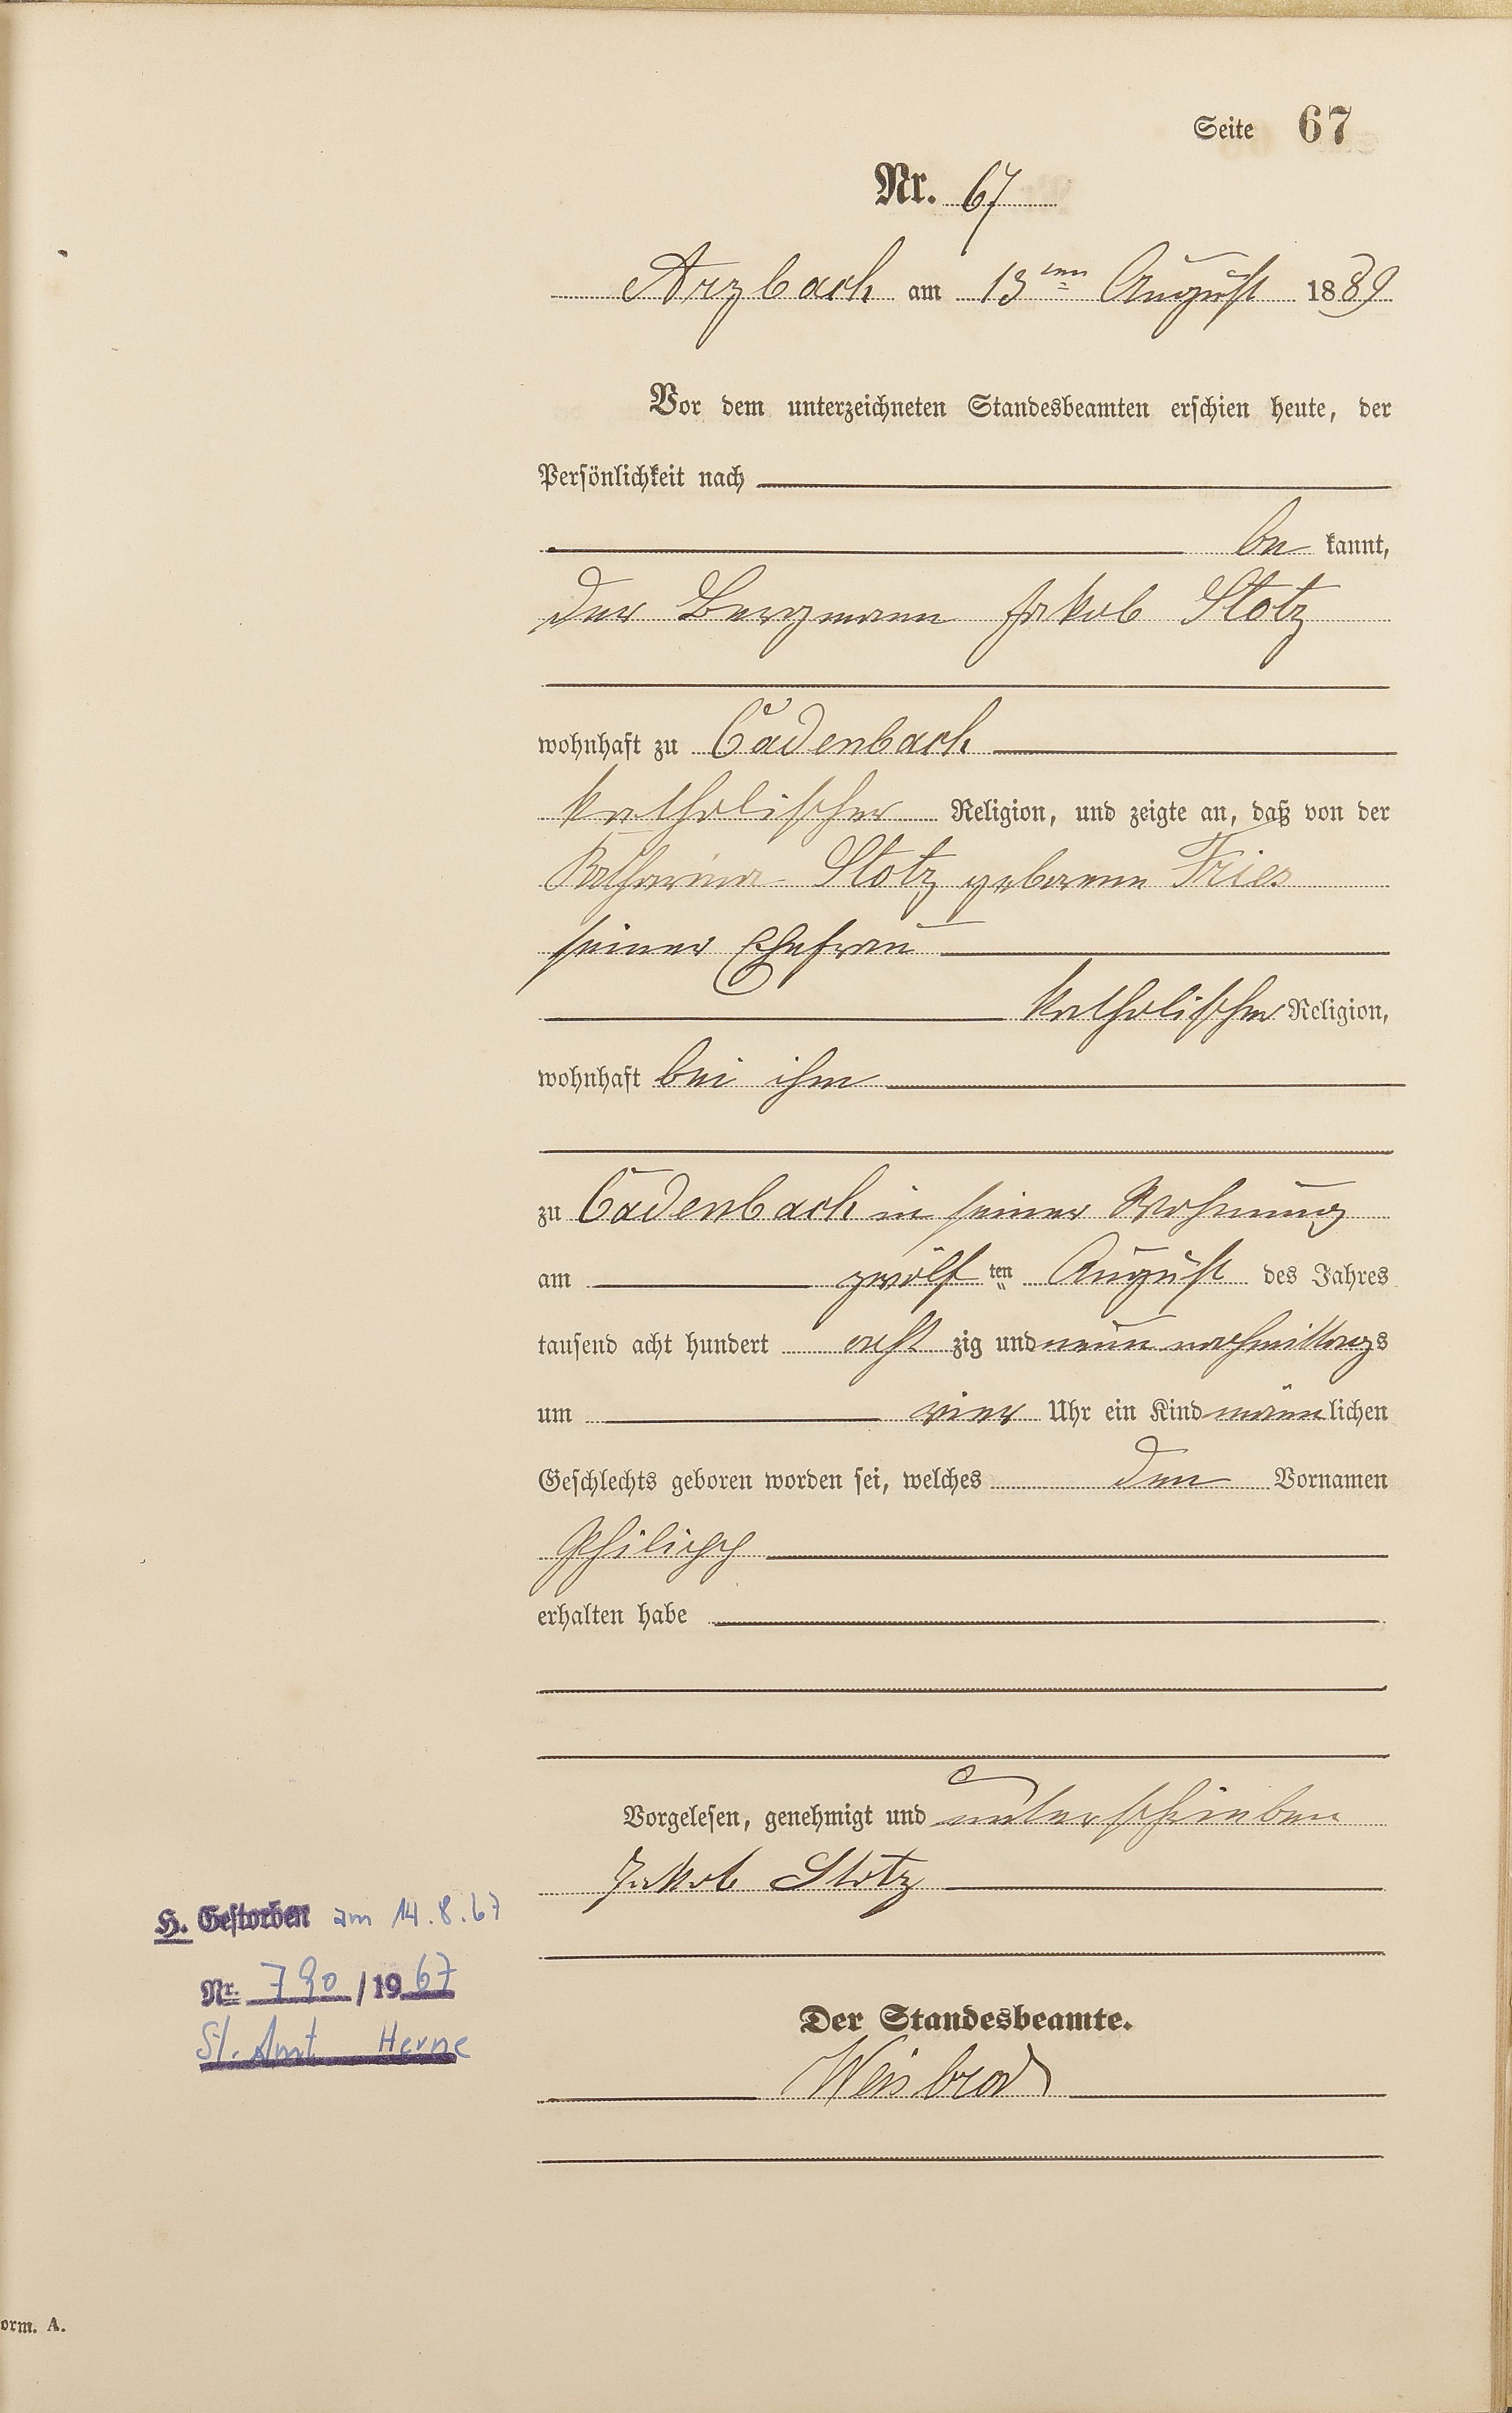 Seite 67
Nr. 67
Arzbach am 13ten August 1889
Vor dem unterzeichneten Standesbeamten erschien heute, der
Persönlichkeit nach
be kannt,
der Bergmann Jakob Stotz
wohnhaft zu Cadenbach
katholischer Religion, und zeigte an, daß von der
Katharina Stotz geborenen Fries
seiner Ehefrau
katholischer Religion,
wohnhaft bei ihm
zu Cadenbach in seiner Wohnung
am zwölf ten August des Jahres
tausend acht hundert acht zig und neun nachmittags
um vier Uhr ein Kind männlichen
Geschlechts geboren worden sei, welches den Vornamen
Philipp
erhalten habe
Vorgelesen, genehmigt und unterschrieben
Jakob Stotz
H. Gestorben am 14.8.67
Nr. 790/1967
St. Amt Herne
Der Standesbeamte.
Weisbrod
orm. A.